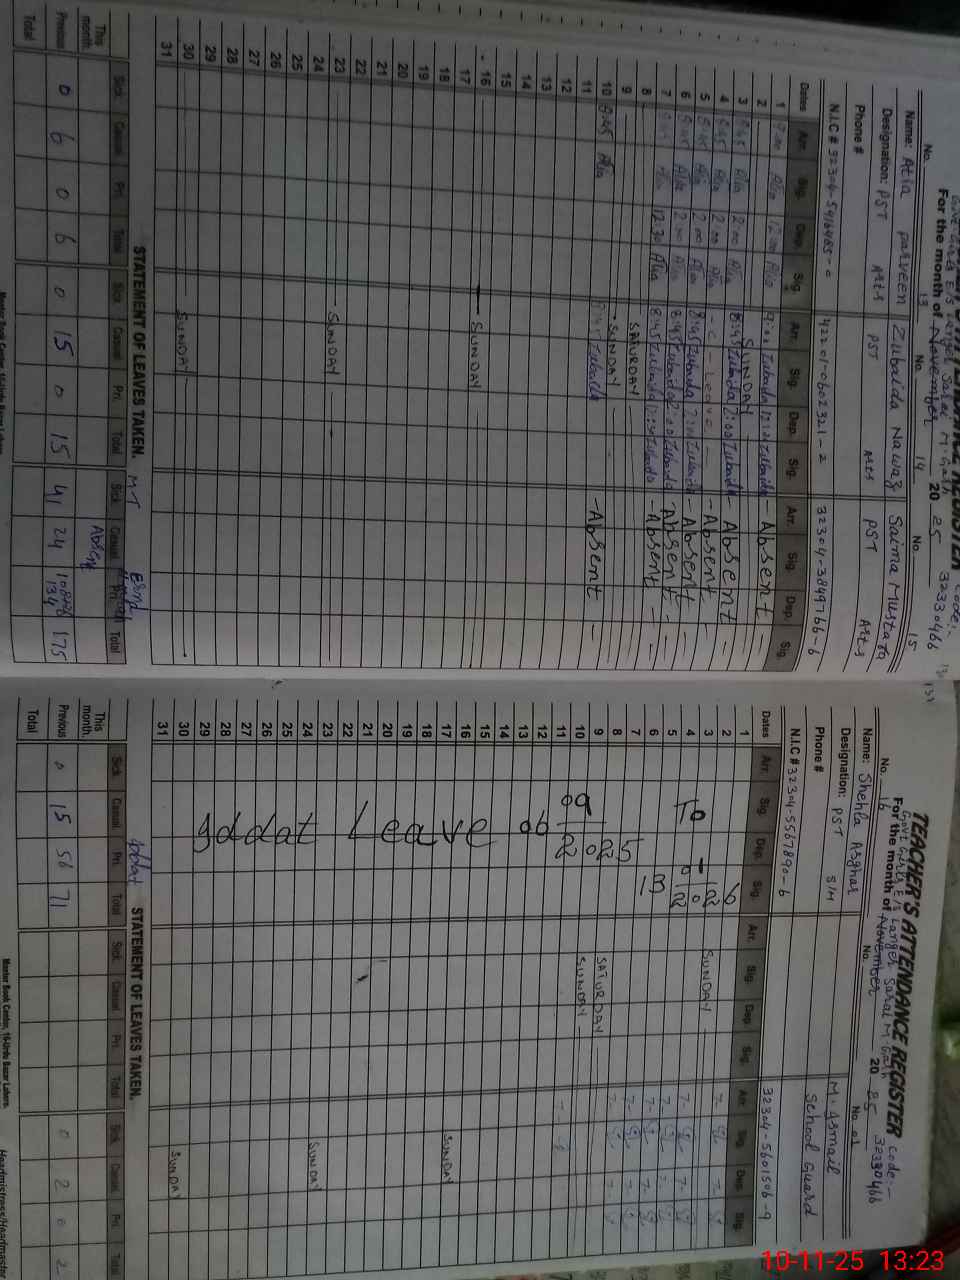 TEACHER'S ATTENDANCE REGISTER Code:-
Govt Girls E/S Langer Sarai M. Garh 32330466
For the month of November 20 25
No. 13 No. 14 No. 15
Name: Atia parveen Zubaida Nawaz Saima Mustafa
Designation: PST Arts PST Arts PST Arts
Phone #
N.I.C # 32304-5916485-0 42201-0602321-2 32304-3849766-6
Dates Arr. Sig. Dep. Sig. Arr. Sig. Dep. Sig. Arr. Sig. Dep. Sig.
1 9:00 Atia 12:00 Atia 9:00 Zubaida Zubaida - Absent -
2 SUNDAY
3 8:45 Atia 2:00 Atia 8:45 Zubaida 2:00 Zubaida - Absent -
4 8:45 Atia 2:00 Atia - C - Leave - - Absent -
5 8:45 Atia 2:00 Atia 8:45 Zubaida 2:00 Zubaida - Absent -
6 8:45 Atia 2:00 Atia 8:45 Zubaida 2:00 Zubaida - Absent -
7 8:45 Atia 12:30 Atia 8:45 Zubaida Zubaida - Absent -
8 SATURDAY
9 SUNDAY
10 8:45 Atia Zubaida - Absent -
11
12
13
14
15
16 SUNDAY
17
18
19
20
21
22
23 SUNDAY
24
25
26
27
28
29
30 SUNDAY
31
STATEMENT OF LEAVES TAKEN. MT
Sick Casual Pri. Total Sick Casual Pri. Total Sick Casual Pri. Total
This month. Absent
Previous 0 6 0 6 0 15 0 15 41 24 134 175
Total
TEACHER'S ATTENDANCE REGISTER Code:-
Govt Girls E/S Langer Sarai M. Garh 32330466
For the month of November 20 25
No. 16 No. No. 01
Name: Shehla Asghar M. Ismail
Designation: PST S/H School Guard
Phone #
N.I.C # 32304-5567890-6 32304-5601506-9
Dates Arr. Sig. Dep. Sig. Arr. Sig. Dep. Sig. Arr. Sig. Dep. Sig.
1
2
3 SUNDAY
4
5
6
7
8
9 SATURDAY
10 SUNDAY
11
12
13
14
15
16
17 SUNDAY
18
19
20
21
22
23
24 SUNDAY
25
26
27
28
29
30 SUNDAY
31
Iddat Leave 06 09 2025 To 13 01 2026
Iddat STATEMENT OF LEAVES TAKEN.
Sick Casual Pri. Total Sick Casual Pri. Total Sick Casual Pri. Total
This month.
Previous 0 15 56 71 0 2 0 2
Total
Master Book Center, 16-Urdu Bazar Lahore.
Headmistress/Headmaster
10-11-25 13:23